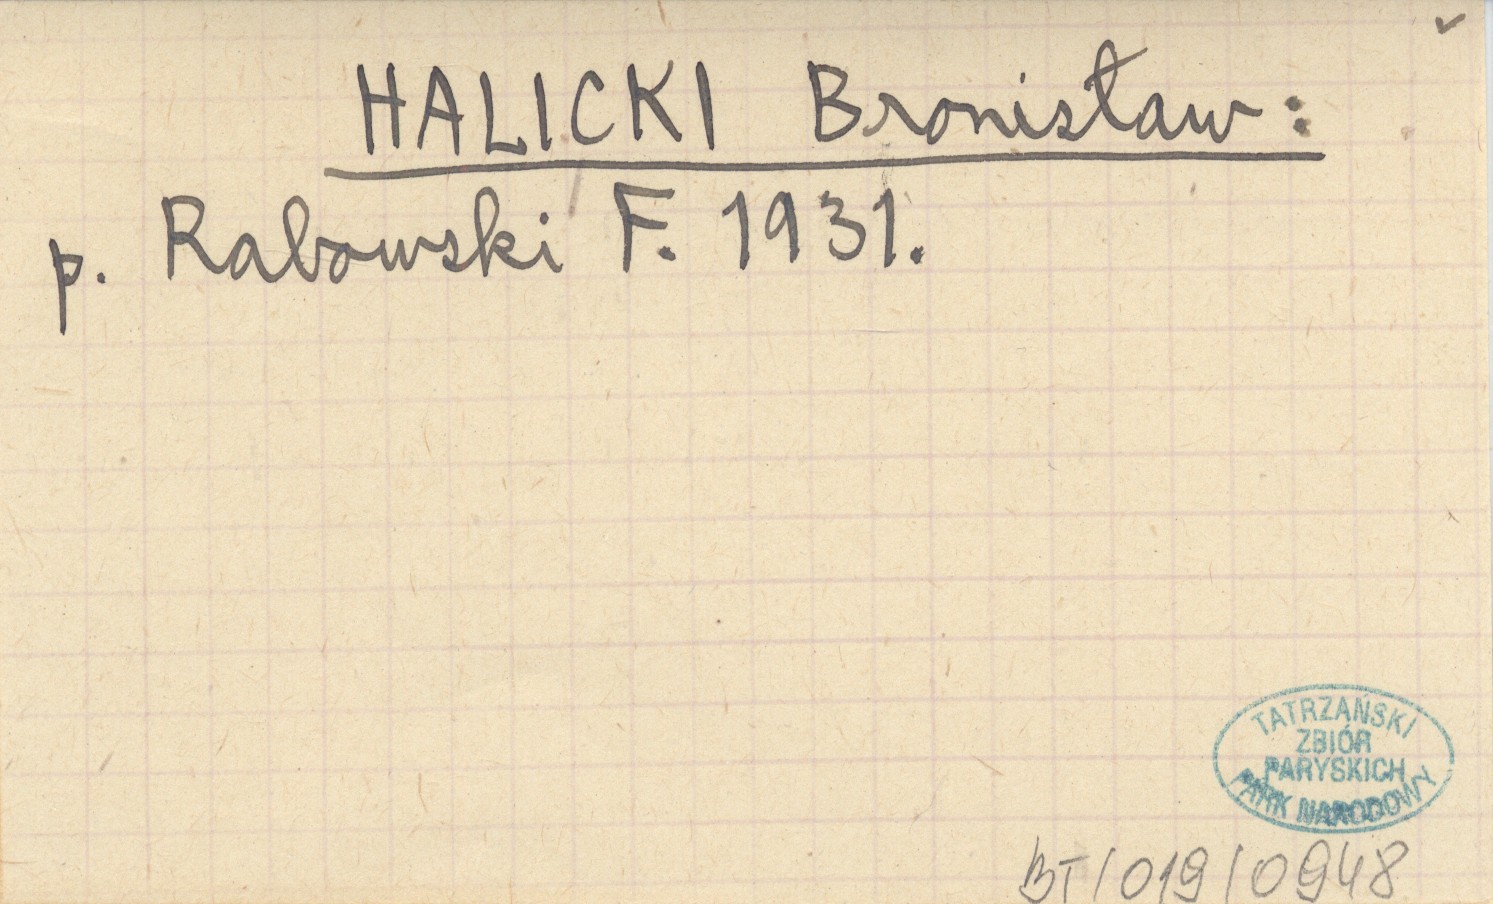 HALICKI Bronisław:
p. Rabowski F. 1931.
TATRZAŃSKI
ZBIÓR
PARYSKICH
PARK NARODOWY
BT/019/0948